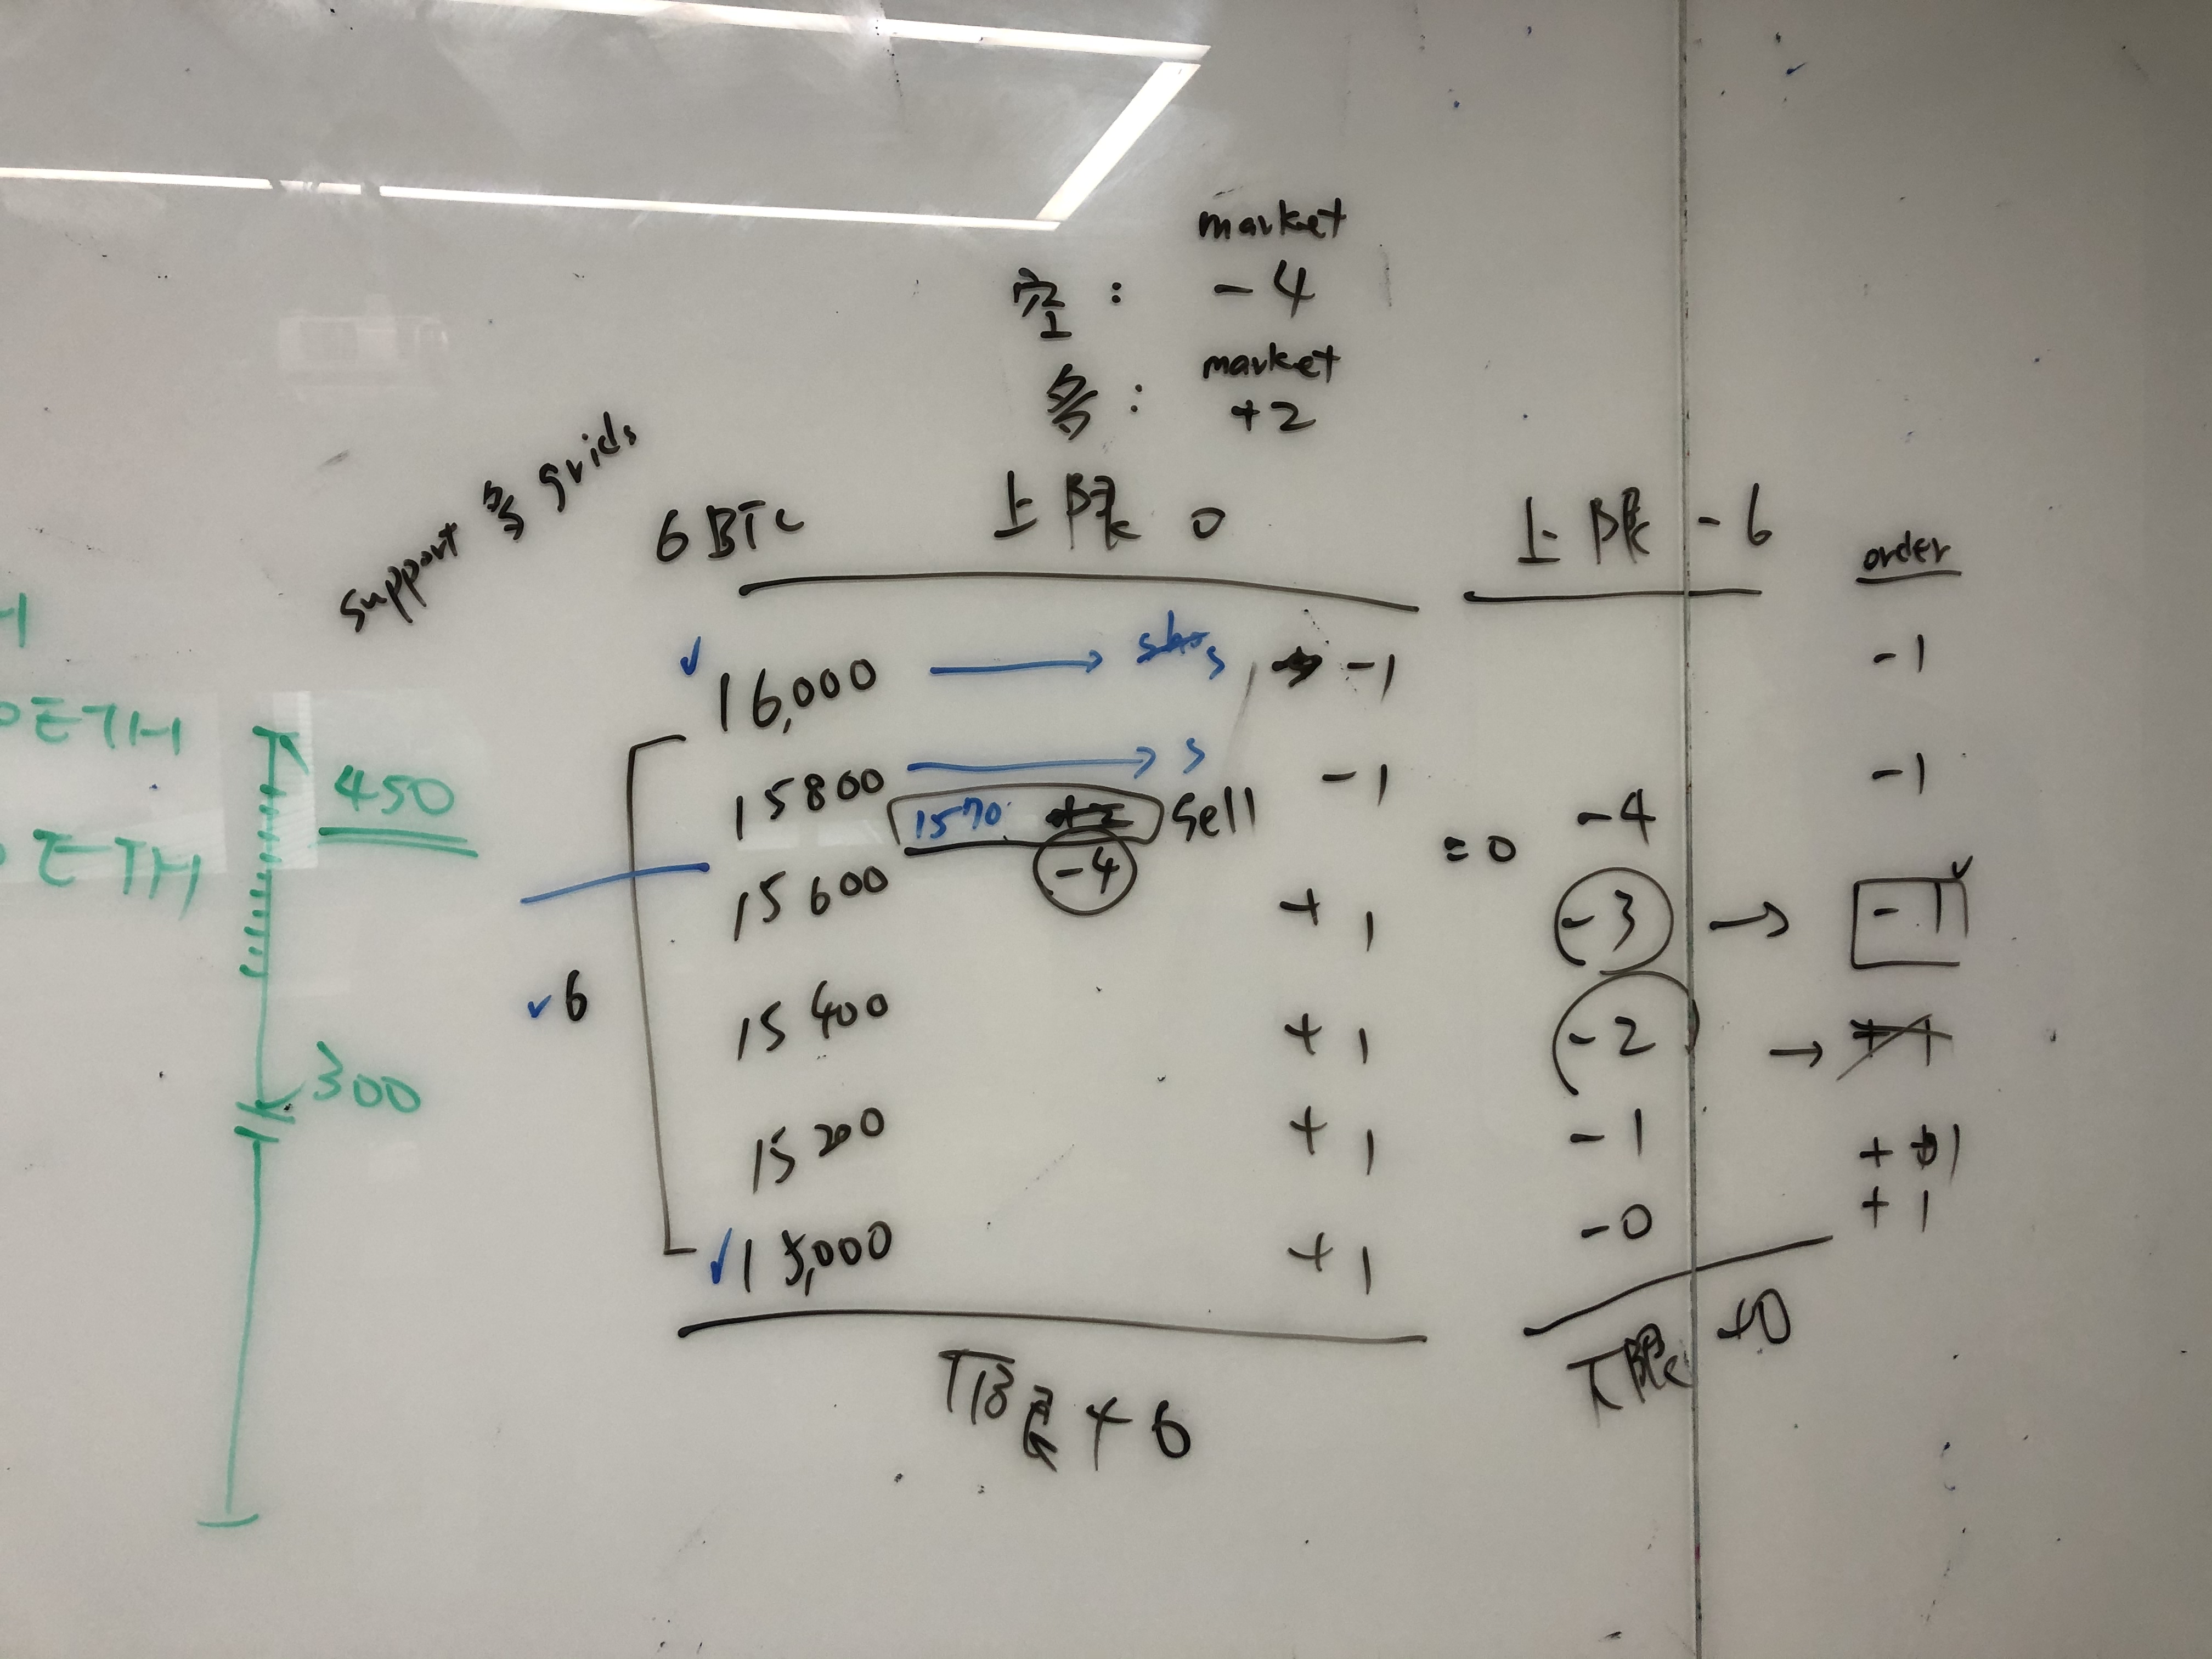 market
空: -4
market
多: +2
support 多 grids
6 BTC 上限 0
上限 -6
order
16,000 → s → -1
-1
15800 → s -1
-1
1570 +2 sell
-4
= 0
-4
15600 -4 + 1
-3 → -1
15400 + 1
-2 → +1
6
15200 + 1
-1
+ 1
15,000 + 1
-0
+ 1
下限 +6
下限 +0
H
ETH
450
ETH
300